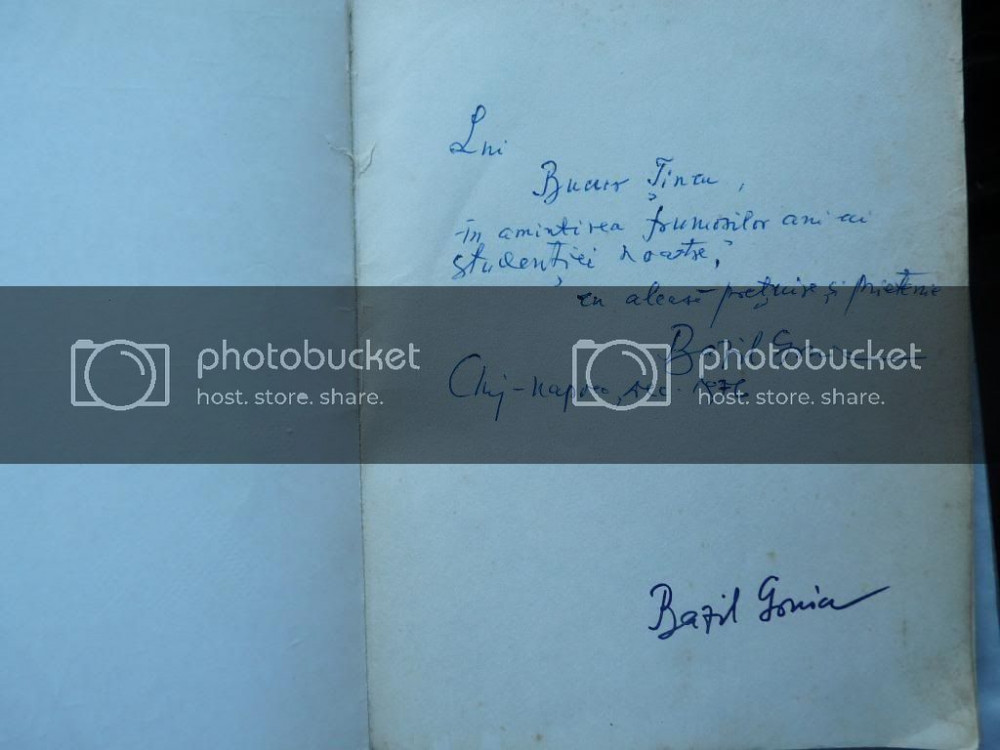 Lui
Bucur Țincu,
în amintirea frumoșilor ani ai
studenției noastre,
cu aleasă prețuire și prietenie
Bazil Gruia
Cluj-Napoca, dec. 1976
photobucket
host. store. share.
photobucket
host. store. share.
Bazil Gruia